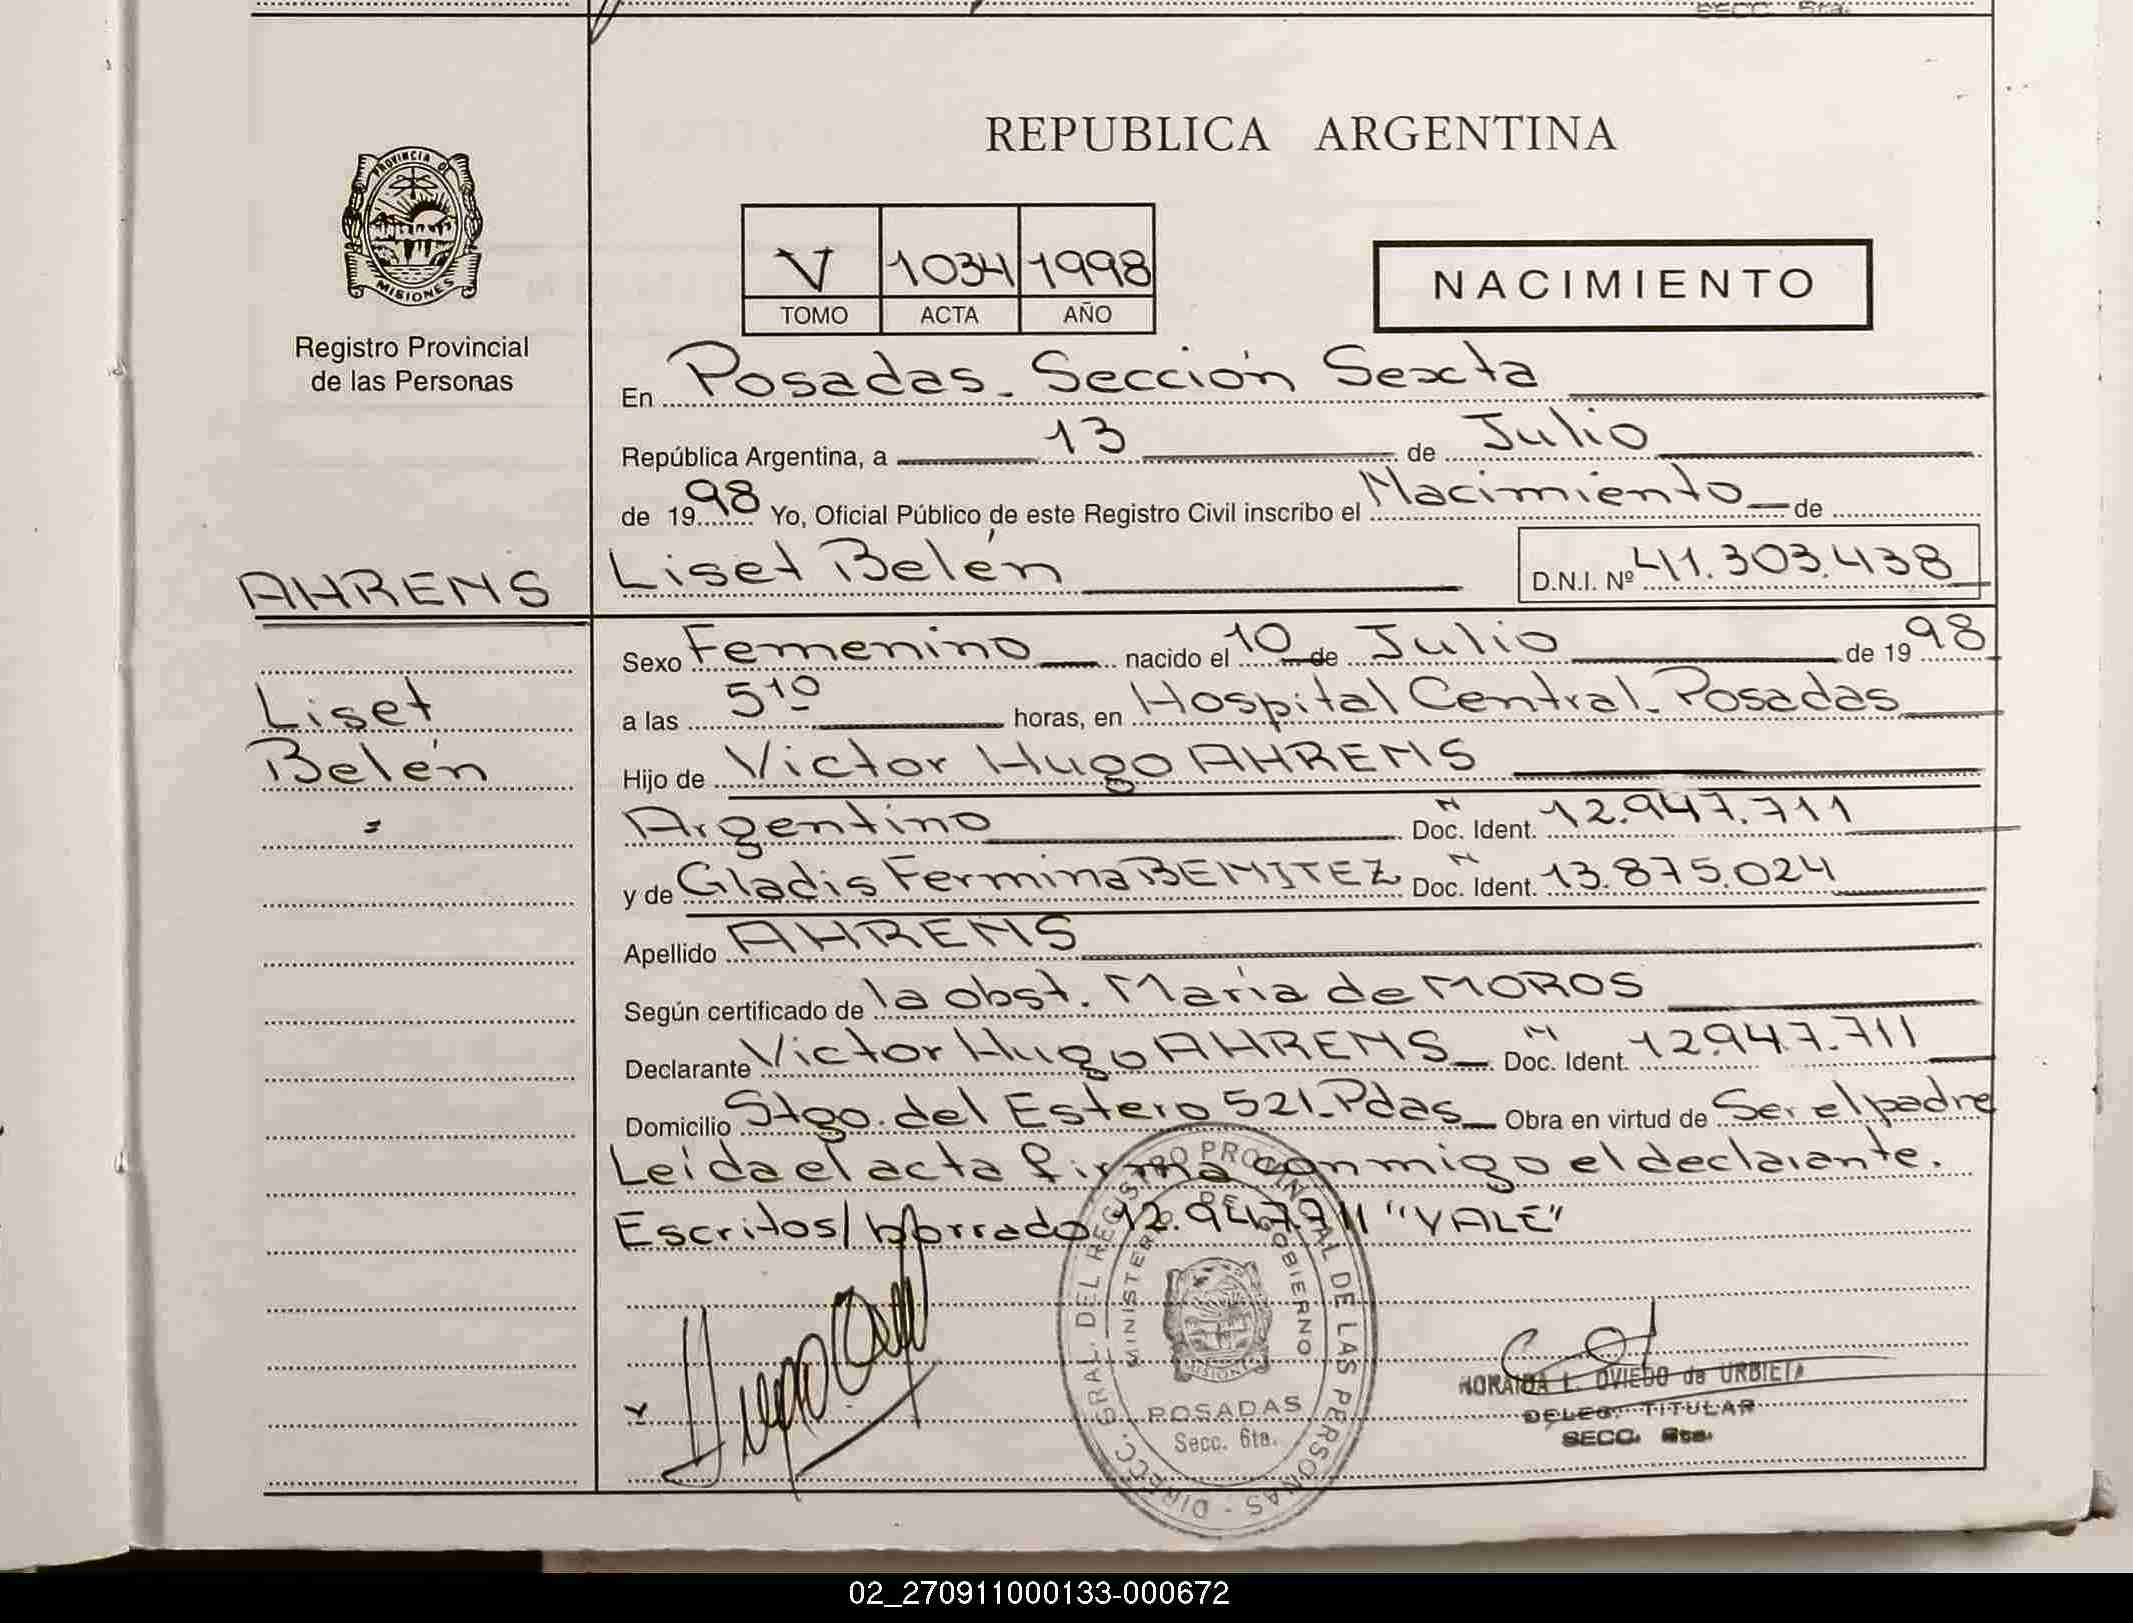 SECC. 6ta.
REPUBLICA ARGENTINA
PROVINCIA DE
MISIONES
Registro Provincial
de las Personas
V 1034 1998
TOMO ACTA AÑO
NACIMIENTO
En Posadas - Sección Sexta
República Argentina, a 13 de Julio
de 1998 Yo, Oficial Público de este Registro Civil inscribo el Nacimiento de
AHRENS Liset Belén D.N.I. Nº 41.303.438
Sexo Femenino nacido el 10 de Julio de 1998
Liset
a las 5¹⁰ horas, en Hospital Central - Posadas
Belén
Hijo de Victor Hugo AHRENS
Argentino Doc. Ident. N 12.947.711
y de Gladis Fermina BENITEZ Doc. Ident. N 13.875.024
Apellido AHRENS
Según certificado de la obst. Maria de MOROS
Declarante Victor Hugo AHRENS Doc. Ident. N 12.947.711
Domicilio Stgo. del Estero 521 - Pdas Obra en virtud de Ser el padre
Leída el acta firma conmigo el declarante.
Escritos/borrado 12.947.711 "VALE"
DIRECC. GRAL. DEL REGISTRO PROVINCIAL DE LAS PERSONAS
MINISTERIO DE GOBIERNO
MISIONES
POSADAS
Secc. 6ta.
L. OVIEDO de URBIETA
DELEG. TITULAR
SECC. 6ta.
02_270911000133-000672